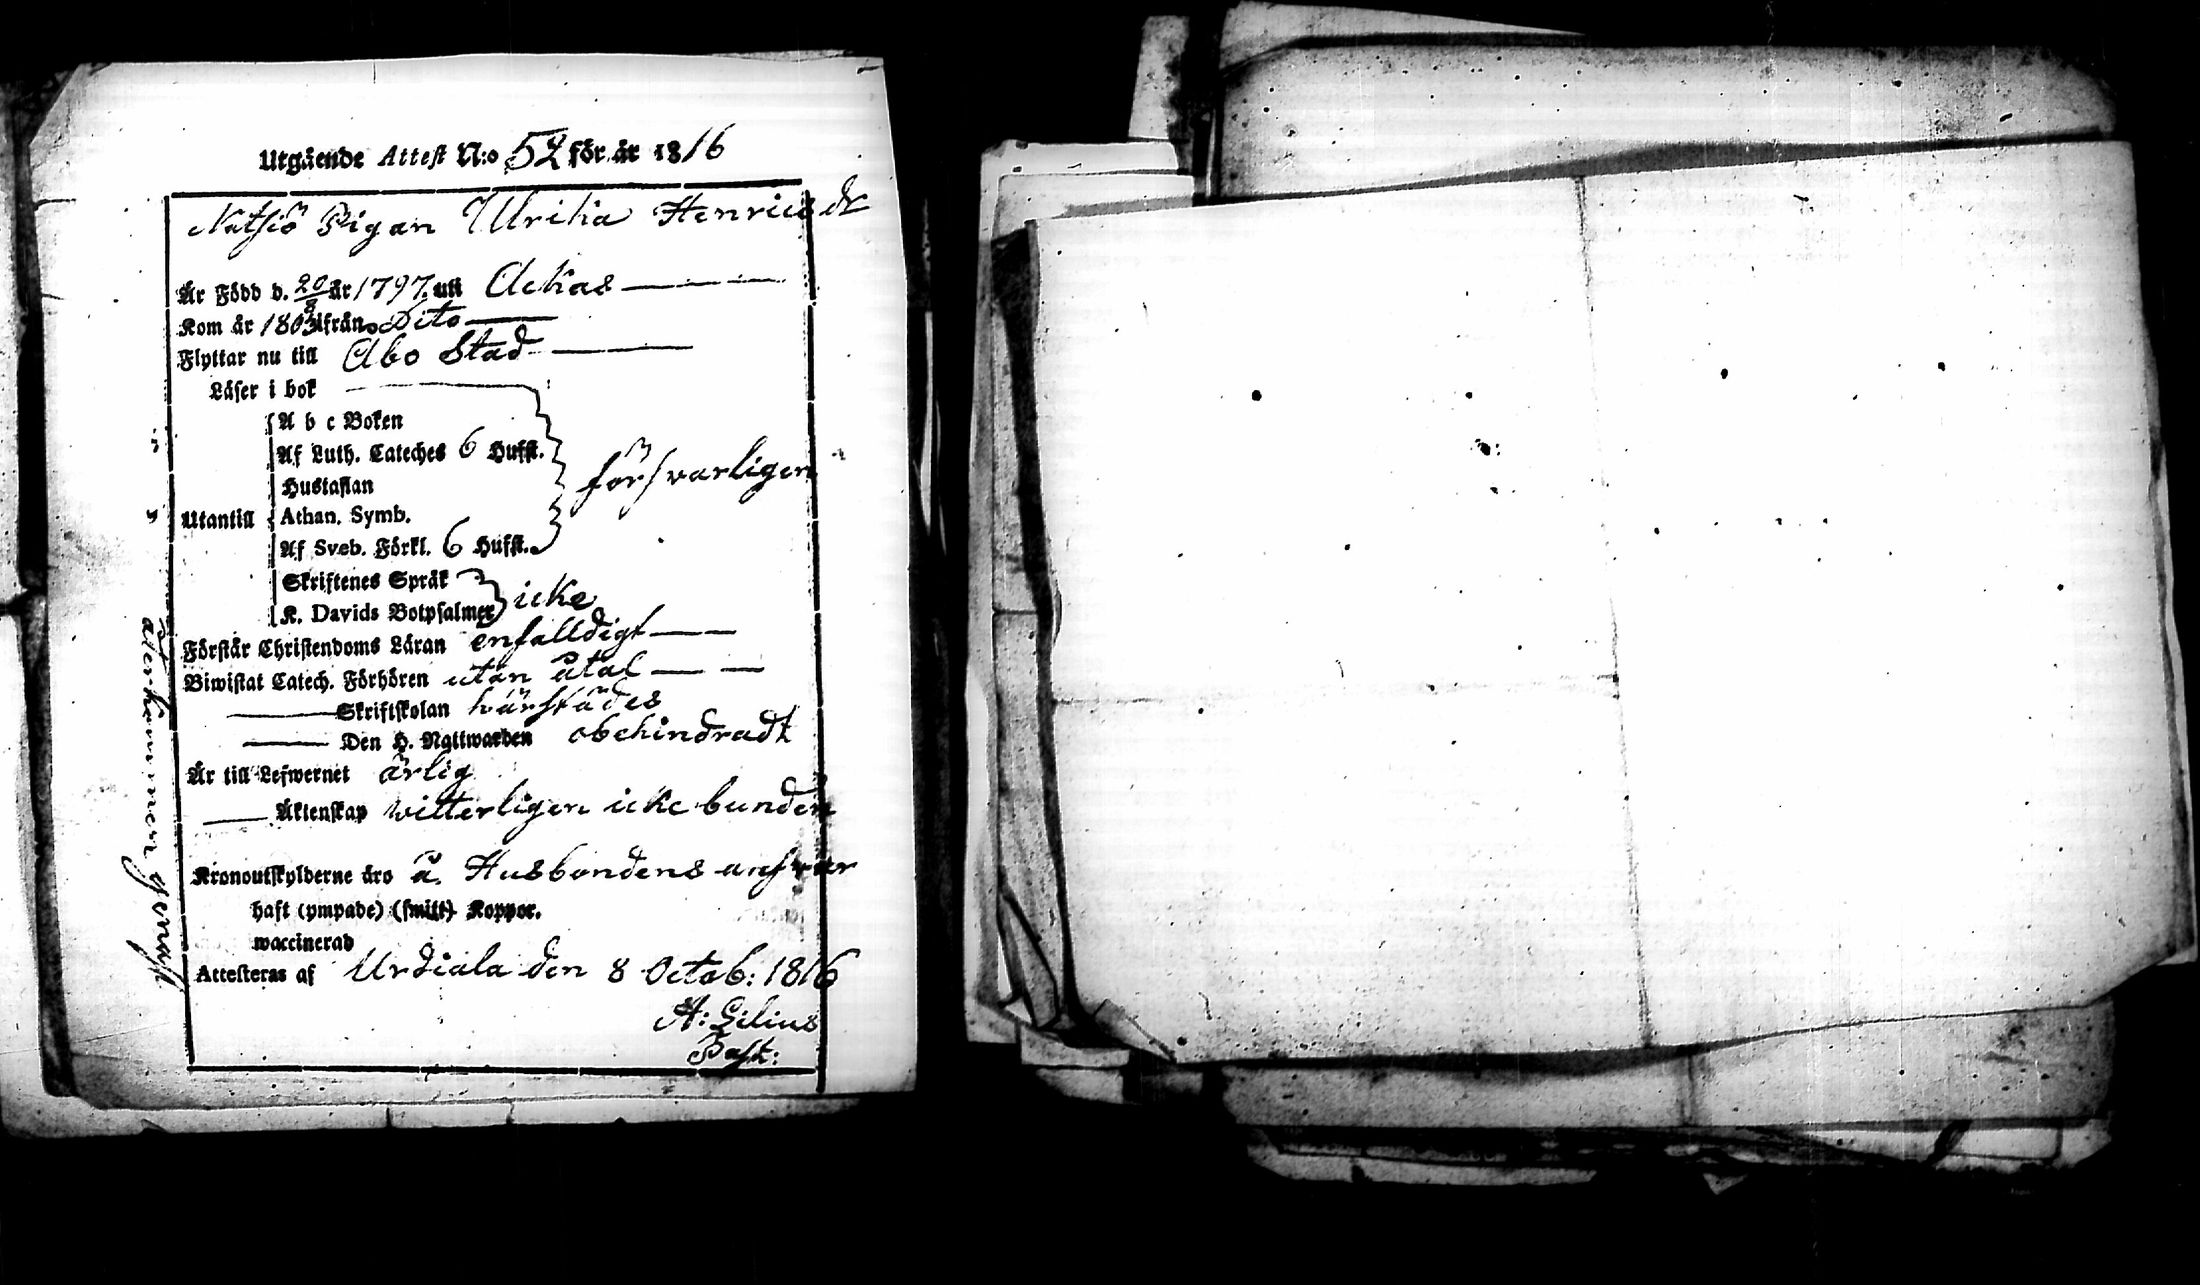 Utgående Attest N:o 52 för år 1816
Nutsiö Pigan Ulrika Henricsdr
Är Född d. 20/8 år 1797. uti Ackas
Kom år 1803 ifrån Dito
Flyttar nu till Åbo Stad
Läser i bok
A b c Boken
Af Luth. Cateches 6 Hufst.
försvarligen
Hustaflan
Utantill Athan. Symb.
Af Sveb. Förkl. 6 Hufst.
Skriftenes Språk
icke
K. Davids Botpsalmer
Förstår Christendoms Läran enfalldigt
Biwistat Catech. Förhören utan åtal
Skriftskolan härstädes
Den H. Nattwarden obehindradt
Är till Lefwernet ärlig
Äktenskap witterligen icke bunden
Kronoutskylderne äro å Husbondens answar
haft (ympade) (smitt) Koppor.
waccinerad
Attesteras af Urdiala den 8 Octob: 1816
A: Gilius
Past:
återkommen genast